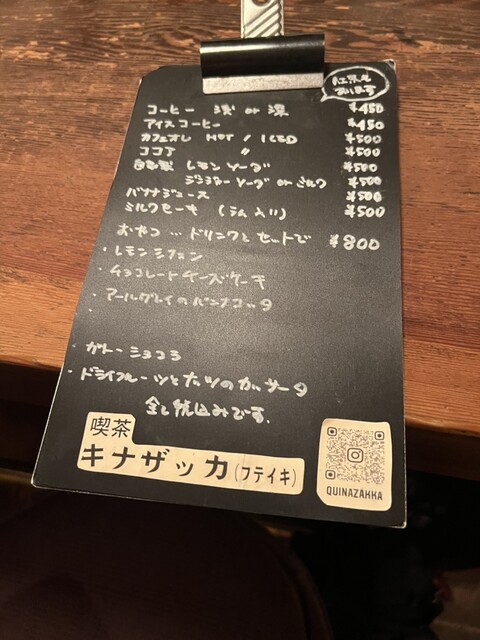 紅茶も
あります
コーヒー 浅 or 深 ¥450
アイスコーヒー ¥450
カフェオレ HOT / ICED ¥500
ココア 〃 ¥500
自家製 レモンソーダ ¥500
ジンジャーソーダ or ミルク ¥500
バナナジュース ¥500
ミルクセーキ (ラム入り) ¥500
おやつ … ドリンクとセットで ¥800
・レモンシフォン
・チョコレートチーズケーキ
・アールグレイのパンナコッタ
・
・ガトーショコラ
・ドライフルーツとナッツのカッサータ
全て仕込みです。
喫茶
キナザッカ(フテイキ)
QUINAZAKKA